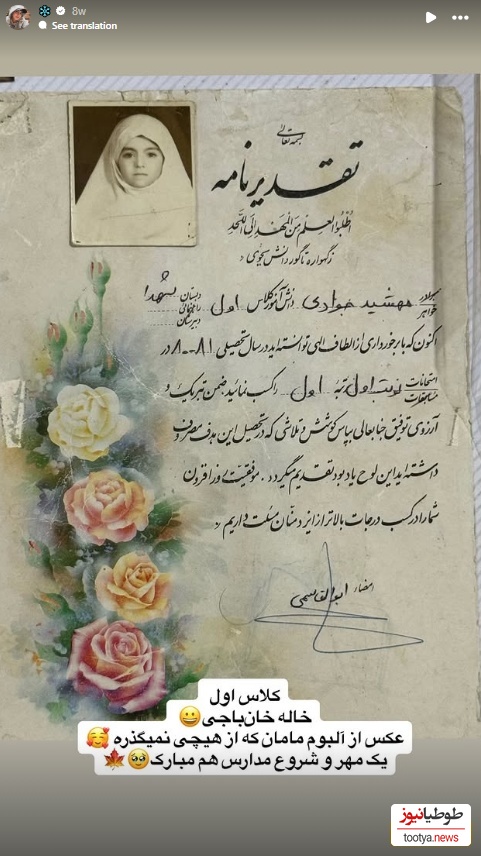 8w
See translation
بسمه تعالی
تقدیرنامه
اُطْلُبُوا العِلْمَ مِنَ الْمَهْدِ اِلَی اللَّحَدِ
ز گهواره تا گور دانش بجوی
برادر خواهر مهشید جوادی دانش آموز کلاس اول دبستان راهنمائی دبیرستان شهدا
اکنون که با برخورداری از الطاف الهی توانسته اید در سال تحصیلی ۸۱-۸۰ در
امتحانات مسابقات نوبت اول رتبه اول را کسب نمائید ضمن تبریک و
آرزوی توفیق جنابعالی بپاس کوشش و تلاشی که در تحصیل این هدف مصروف
داشته اید این لوح یاد بود تقدیم میگردد. موفقیت روز افزون
شما را در کسب درجات بالاتر از ایزد منان مسئلت داریم
امضاء ابوالقاسمی
کلاس اول
خاله خان‌باجی😀
عکس از آلبوم مامان که از هیچی نمیگذره 🥰
یک مهر و شروع مدارس هم مبارک🥹🍁
طوطیانیوز
tootya.news